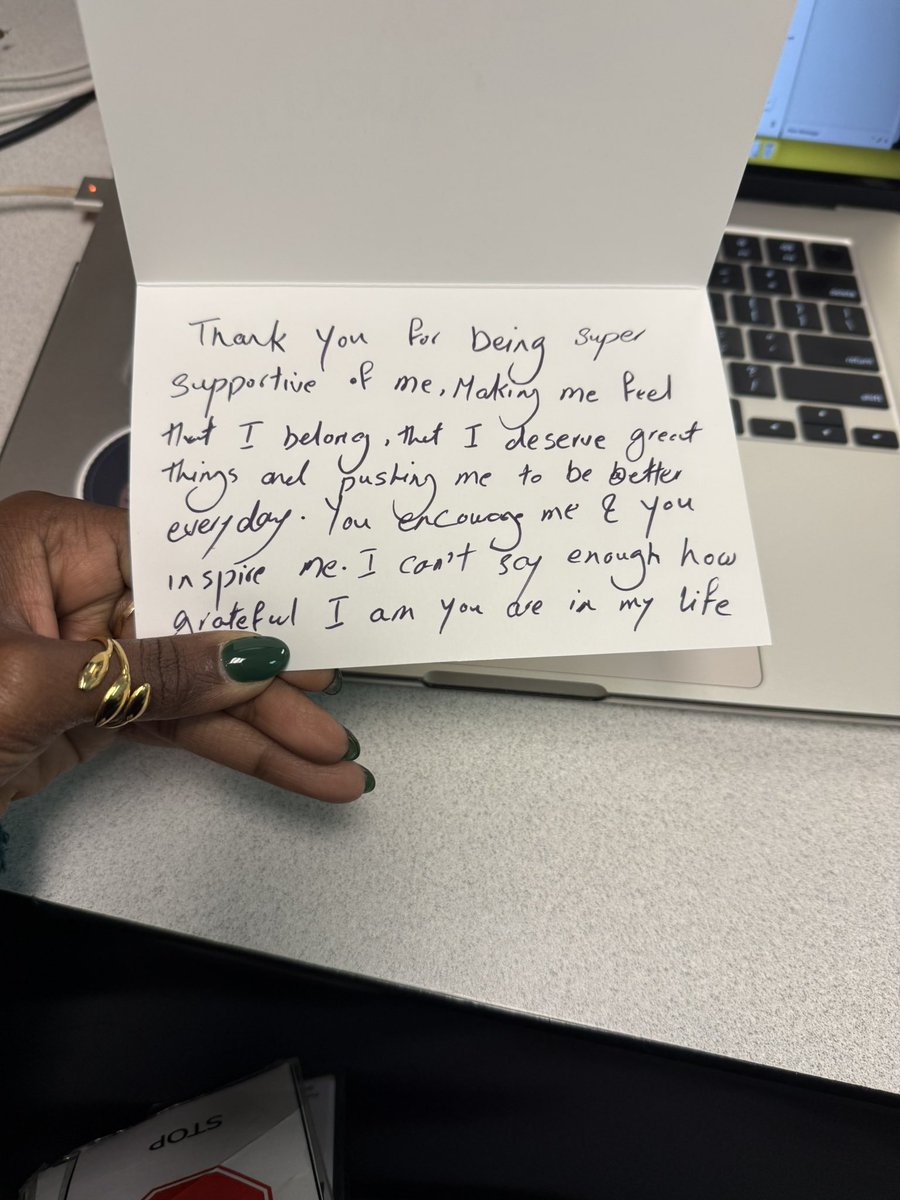 Thank you for being super
supportive of me, Making me feel
that I belong, that I deserve great
things and pushing me to be better
everyday. You encourage me & you
inspire me. I can't say enough how
grateful I am you are in my life
STOP